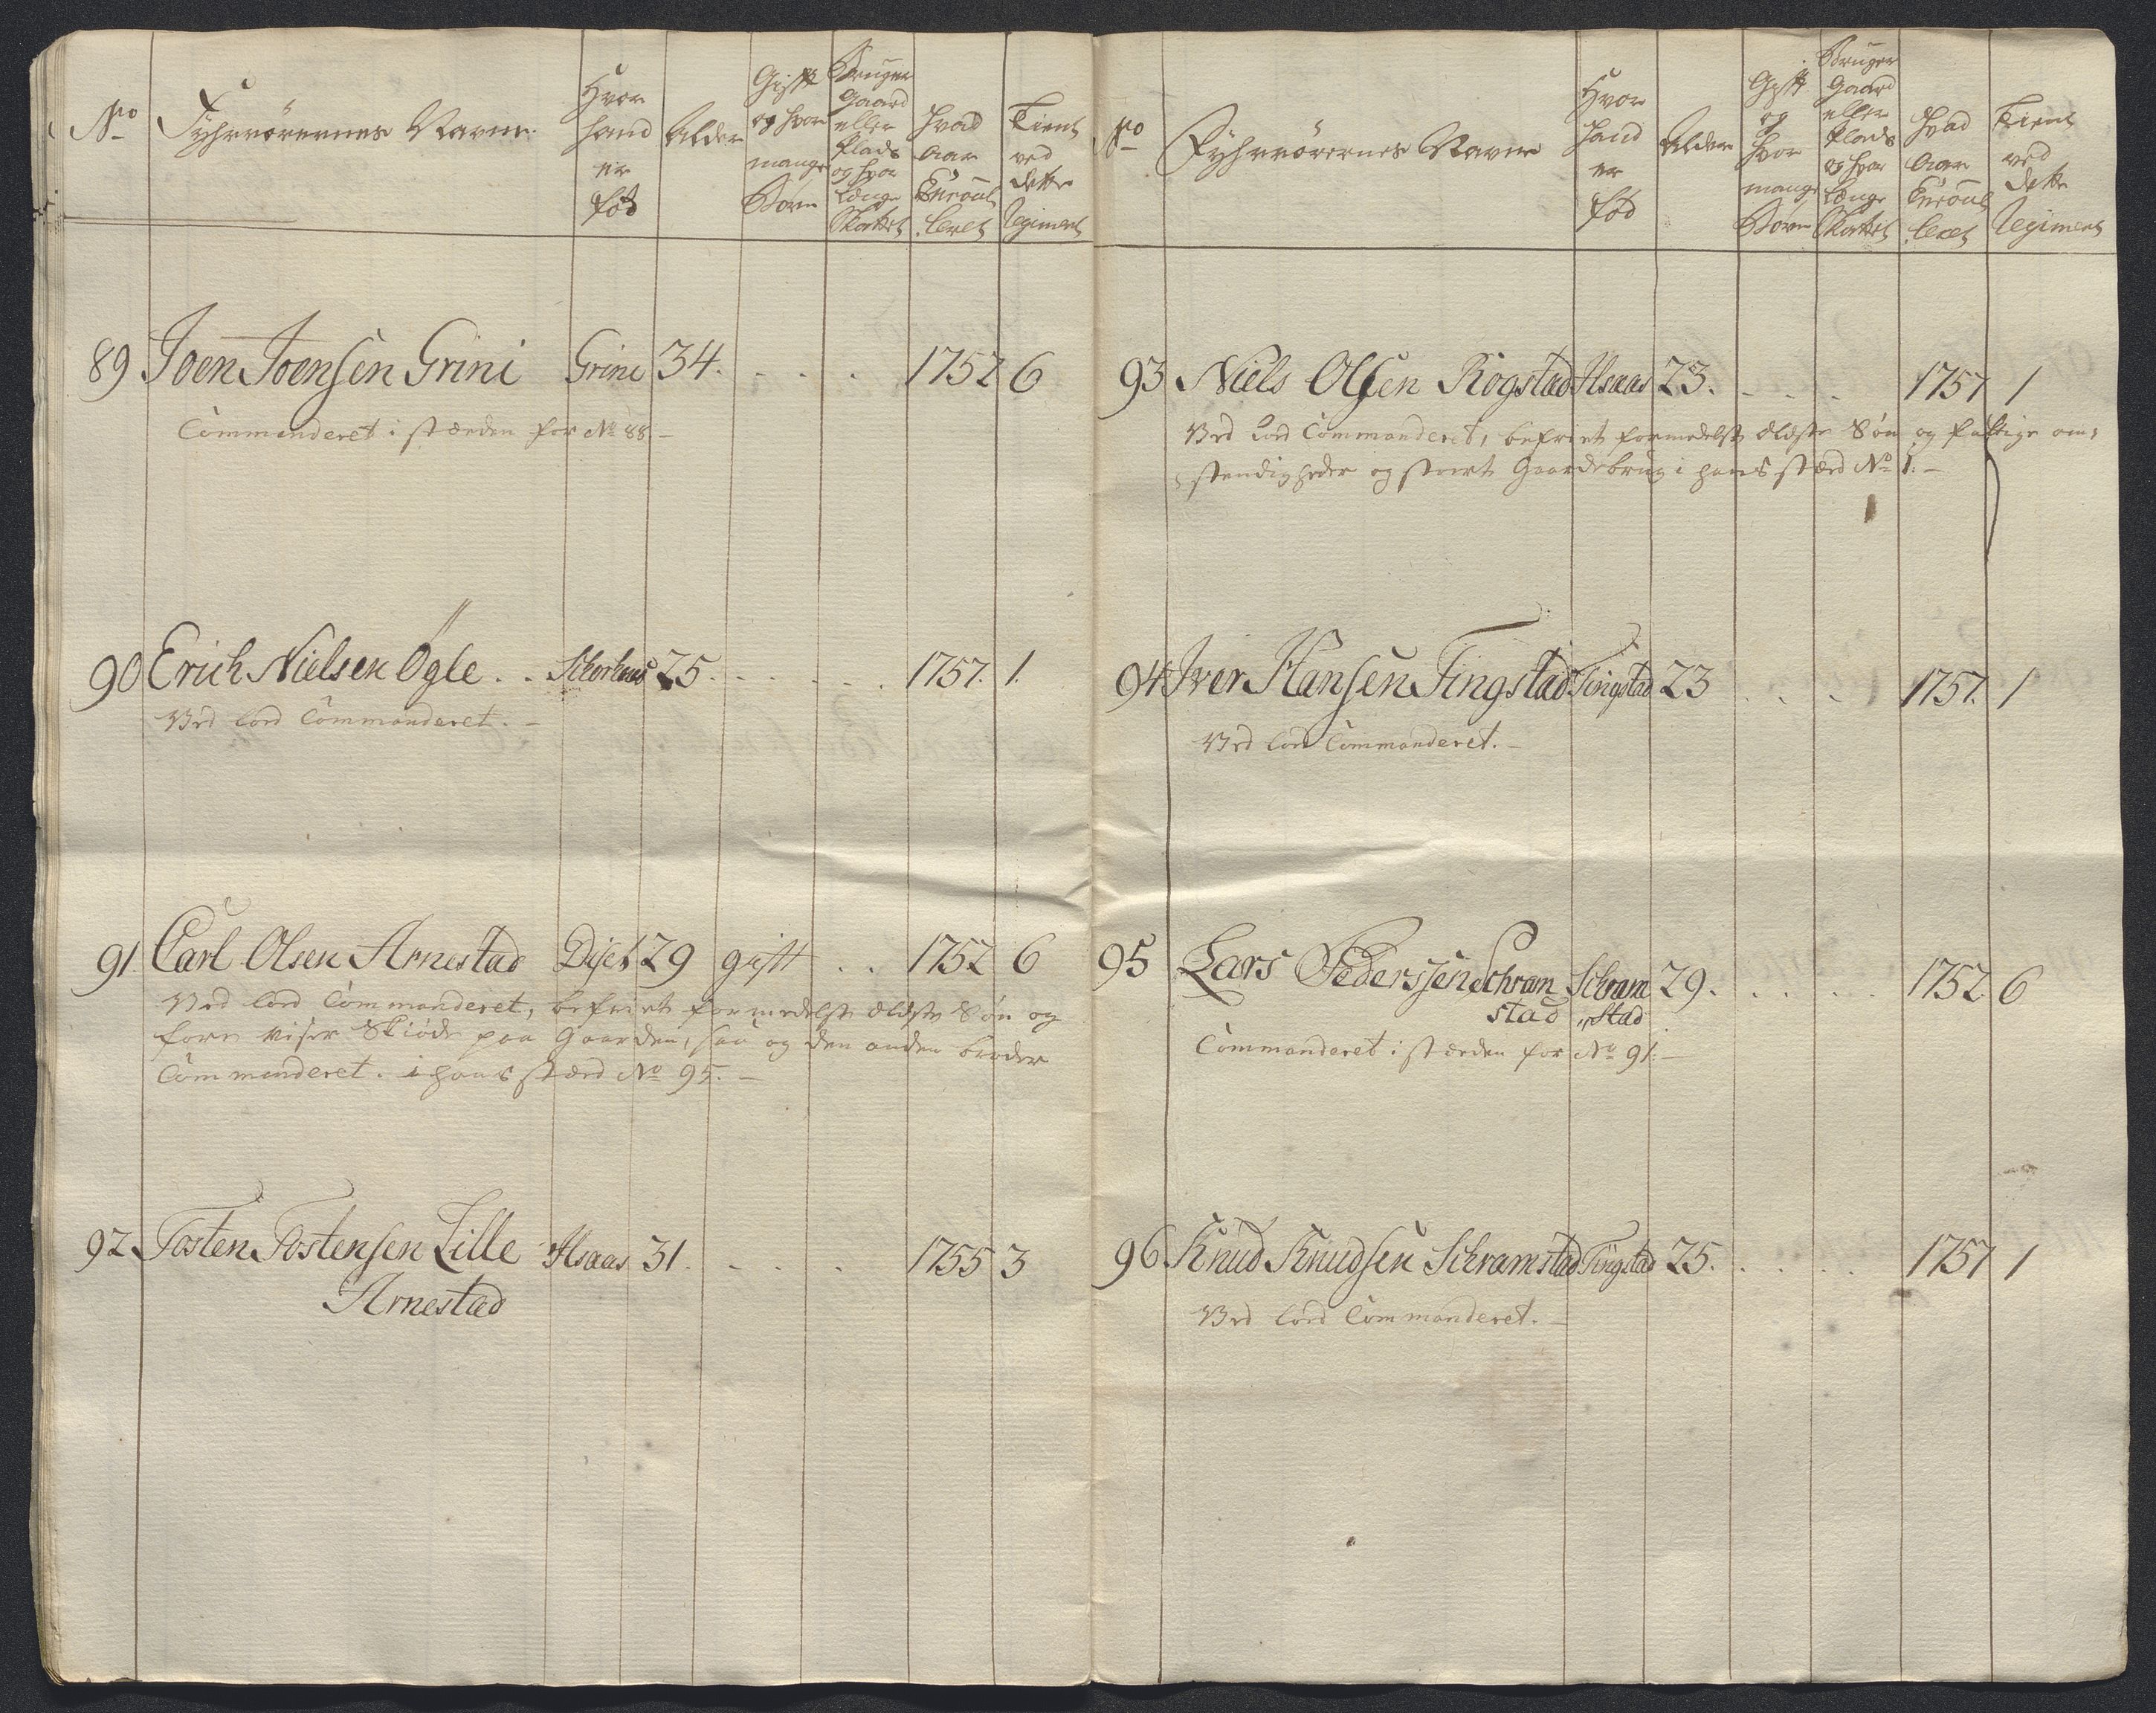 No
Fyhrrörernes Navne
Hvor
hand
er
fød
Alder
Gift
og hvor
mange
Börn
Bruger
Gaard
eller
Plads
og hvor
Længe
Skattet
Hvad
Aar
Enroul
leret
Tient
ved
dette
Regiment
89 Joen Joensen Grini Grini 34. 1752 6
Commanderet i stæden for No 88 -
90 Erich Nielsen Øgle . . 25. 1757. 1.
Ved lod Commanderet. -
91. Carl Olsen Arnestad 29 gift . . 1752 6
Ved lod Commanderet, befriet formedelst ældste Søn og
viser Skiøde paa Gaarden, saa og den anden broder
Commenderet. i hans stæd No 95. -
92 Tosten Tostensen Lille Alsaas 31. 1755 3
Arnestad
No
Fyhrrörernes Navne
Hvor
hand
er
fød
Alder
Gift
og
Hvor
mange
Born
Bruger
Gaard
eller
Plads
og hvor
Længe
Skattet
Hvad
Aar
Enroul
leret
Tient
ved
dette
Regiment
93 Niels Olsen Rogstad Alsaas 23. 1757 1
Ved Lod Commanderet, befriet formedelst ældste Søn og fattige om=
stendigheder og stort Gaardebrug i hans stæd No 1. -
94 Iver Hansen Tingstad Tingstad 23 1757. 1
Ved lod Commanderet. -
95 Lars Pederssen Schram Schram 29. 1752. 6
stad "stad
Commanderet i stæden for No 91. -
96 Knud Knudsen Schramstad Tingstad 25. 1757 1
Ved lod Commanderet. -